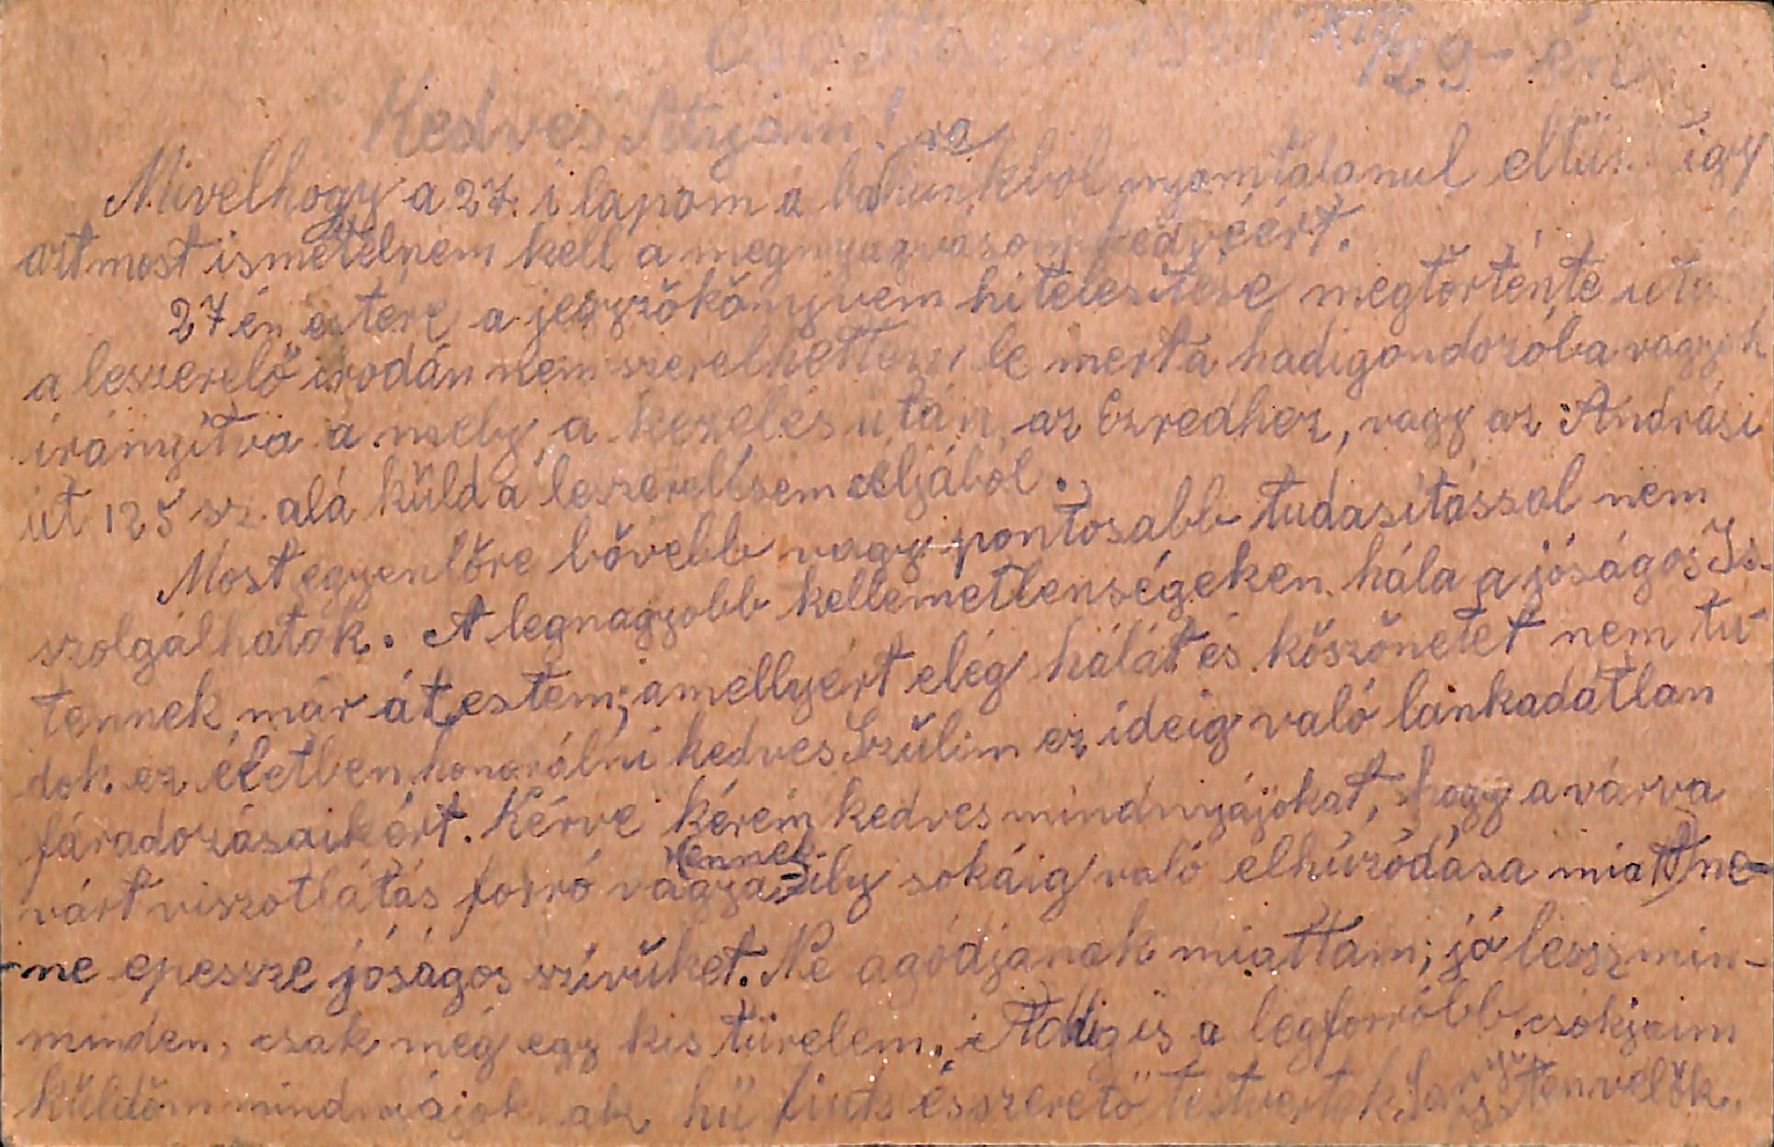 29-én
Kedves Atyám!
Mivelhogy a 27. i lapom a nyomtalanul eltűnt így
azt most ismételnem kell a kedvéért.
27 én estére a jegyzőkönyvem hitelesitése megtörténte után
a leszerelő irodán nem szerelhettem le mert a hadigondozóba vagyok
irányítva a mely a kezelés után az Ezredhez, vagy az Andrási
út 125 sz. alá küld a leszerelésem céljából.
Most egyenlőre bővebb vagy pontosabb tudasítással nem
szolgálhatok. A legnagyobb kellemetlenségeken hála a jóságos Is-
tennek már átestem; amellyért elég hálát és köszönetet nem tu-
dok ez életben honorálni kedves Szülim ez ideig való lankadatlan
fáradozásaikért. Kérve kérem kedves mindnyájokat, hogy a várva
várt viszotlátás forró vágya ennek ily sokáig való elhúzódása miatt ne-
ne epessze jóságos szívüket. Ne agódjanak miattam; jó lessz min-
minden, csak még egy kis türelem. Addig is a legforróbb csókjaim
küldöm mindnyájoknak hű fiuk és szerető testvertek